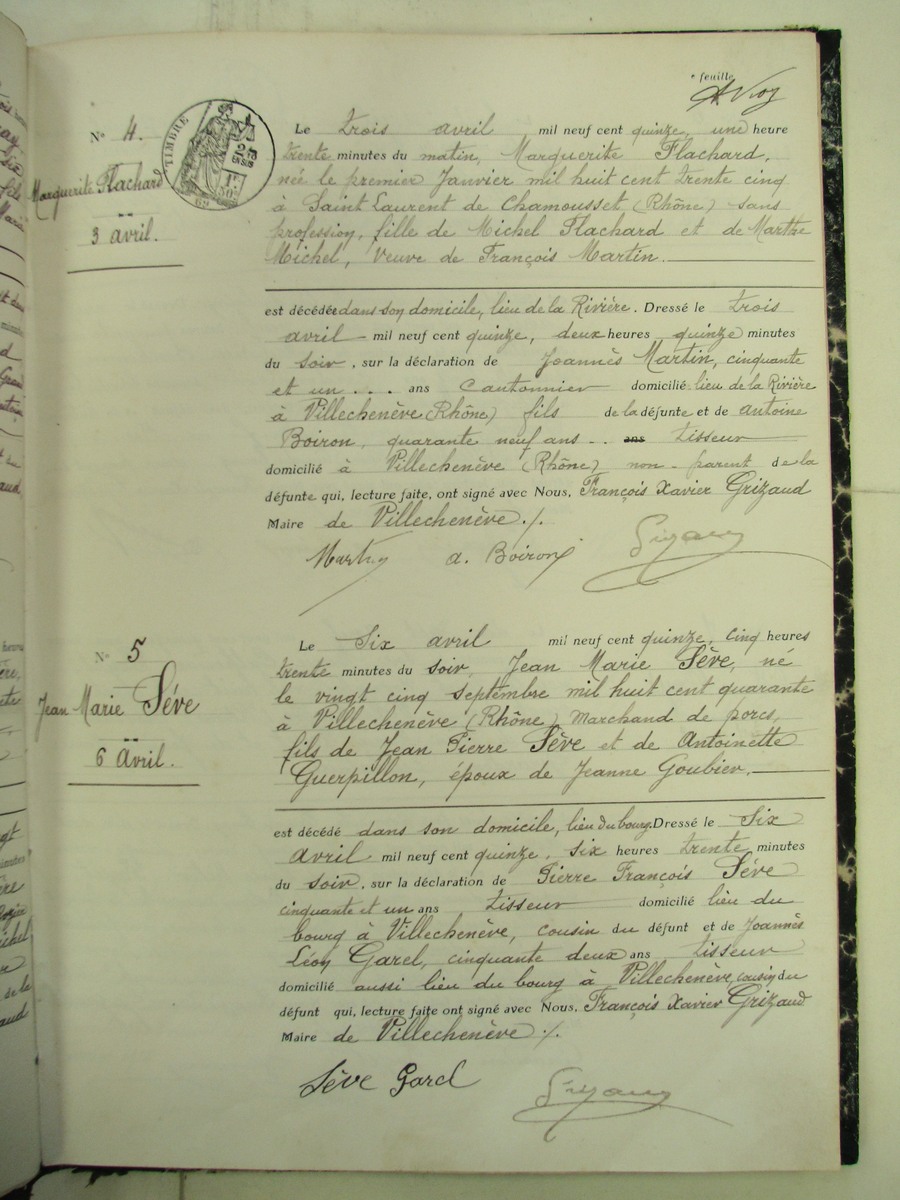 e feuille
N° 4.
TIMBRE
2/10
EN SUS
1F
50C
69
Marguerite Flachard
3 avril.
Le trois avril mil neuf cent quinze, une heure
trente minutes du matin, Marguerite Flachard,
née le premier Janvier mil huit cent trente cinq
à Saint Laurent de Chamousset (Rhône) sans
profession, fille de Michel Flachard et de Marthe
Michel, veuve de François Martin.
est décédée dans son domicile, lieu de la Rivière. Dressé le trois
avril mil neuf cent quinze, deux heures quinze minutes
du soir, sur la déclaration de Joannès Martin, cinquante
et un . . . ans Cantonnier domicilié lieu de la Rivière
à Villechenève (Rhône) fils de la défunte et de Antoine
Boiron, quarante neuf ans . . ans tisseur
domicilié à Villechenève (Rhône) non-parent de la
défunte qui, lecture faite, ont signé avec Nous, François Xavier Grizaud
Maire de Villechenève ./.
Martin a. Boiron
N° 5
Jean Marie Séve
6 Avril.
Le Six avril mil neuf cent quinze, cinq heures
trente minutes du soir, Jean Marie Sève, né
le vingt cinq septembre mil huit cent quarante
à Villechenève (Rhône) Marchand de porcs,
fils de Jean Pierre Sève et de Antoinette
Guerpillon, époux de Jeanne Goubier.
est décédé dans son domicile, lieu du bourg. Dressé le Six
avril mil neuf cent quinze, six heures trente minutes
du soir, sur la déclaration de Pierre François Séve
cinquante et un ans tisseur domicilié lieu du
bourg à Villechenève, cousin du défunt et de Joannès
Léon Garel, cinquante deux ans tisseur
domicilié aussi lieu du bourg à Villechenève, cousin du
défunt qui, lecture faite, ont signé avec Nous, François Xavier Grizaud
Maire de Villechenève ./.
Sève Garel